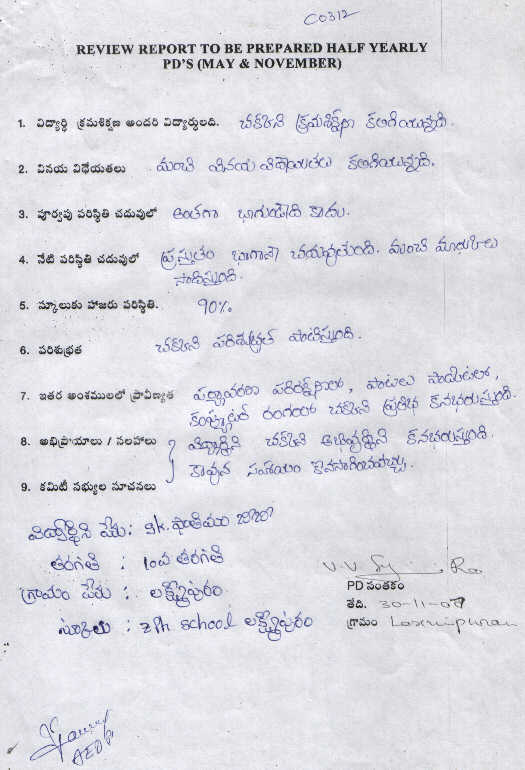 C0312
REVIEW REPORT TO BE PREPARED HALF YEARLY
PD'S (MAY & NOVEMBER)
1. విద్యార్థి క్రమశిక్షణ అందరి విద్యార్థులది. చక్కని క్రమశిక్షణ కలిగియున్నది.
2. వినయ విధేయతలు మంచి వినయ విధేయతలు కలిగియున్నది.
3. పూర్వపు పరిస్థితి చదువులో అంతగా బాగుండేది కాదు.
4. నేటి పరిస్థితి చదువులో ప్రస్తుతం బాగానే చదువుతుంది. మంచి మార్కులు
సాధిస్తుంది.
5. స్కూలుకు హాజరు పరిస్థితి. 90%
6. పరిశుభ్రత చక్కని పరిశుభ్రత పాటిస్తుంది.
7. ఇతర అంశములలో ప్రావీణ్యత పర్యావరణ పరిరక్షణలో, పాటలు పాడుటలో,
కంప్యూటర్ రంగంలో చక్కని ప్రతిభ కనబరుస్తుంది.
8. అభిప్రాయాలు / సలహాలు విద్యార్థిని చక్కని అభివృద్ధిని కనబరుస్తుంది.
కావున సహాయం కొనసాగించవచ్చు.
9. కమిటీ సభ్యుల సూచనలు
విద్యార్థిని పేరు: sk. ఫాతిమా బీబి
తరగతి : 10వ తరగతి
గ్రామం పేరు : లక్ష్మీపురం
స్కూలు : ZPH school లక్ష్మీపురం
V. V. Rao
PD సంతకం
తేది. 30-11-07
గ్రామం Laxmipuram